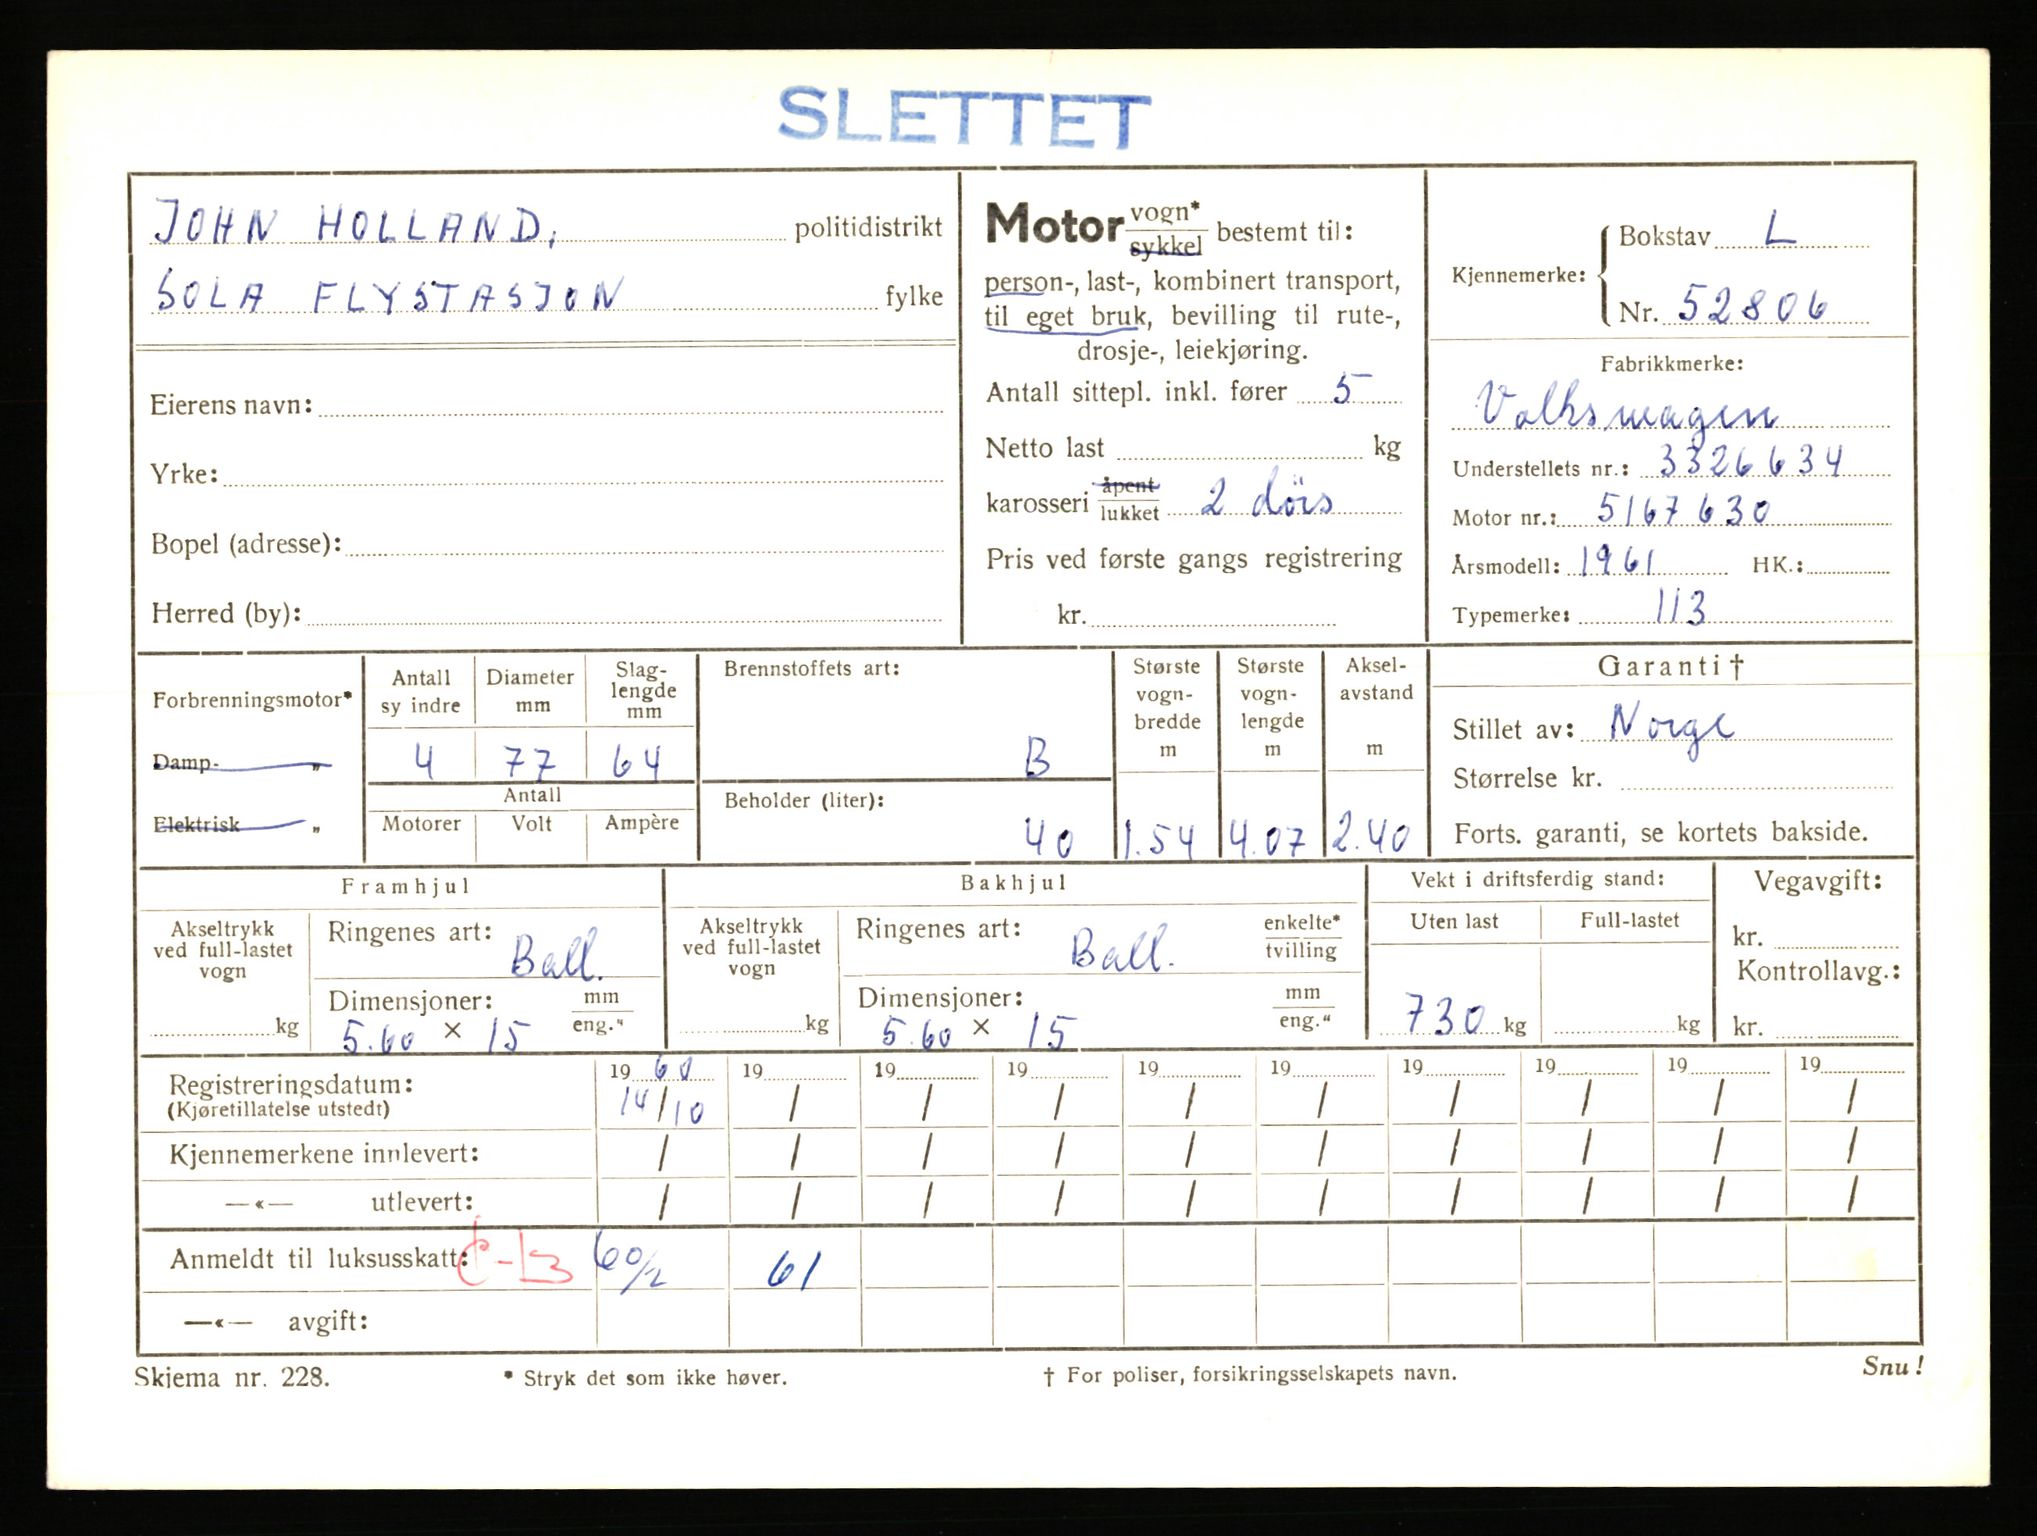 SLETTET
JOHN HOLLAND, politidistrikt
SOLA FLYSTASJON fylke
Eierens navn:
Yrke:
Bopel (adresse):
Herred (by):
Motor vogn* sykkel bestemt til:
person-, last-, kombinert transport,
til eget bruk, bevilling til rute-,
drosje-, leiekjøring.
Antall sittepl. inkl. fører 5
Netto last kg
karosseri åpent lukket 2 dörs
Pris ved første gangs registrering
kr.
Kjennemerke: Bokstav L
Nr. 52806
Fabrikkmerke:
Volkswagen
Understellets nr.: 3326634
Motor nr.: 5167630
Årsmodell: 1961 HK.:
Typemerke: 113
Forbrenningsmotor*
Damp- „
Elektrisk „
Antall sy indre
Diameter mm
Slag-
lengde
mm
4 77 64
Antall
Motorer Volt Ampère
Brennstoffets art:
B
Beholder (liter):
40
Største
vogn-
bredde
m
1.54
Største
vogn-
lengde
m
4.07
Aksel-
avstand
m
2.40
Garanti †
Stillet av: Norge
Størrelse kr.
Forts. garanti, se kortets bakside.
Framhjul
Akseltrykk
ved full-lastet
vogn
kg
Ringenes art:
Ball.
Dimensjoner: mm eng."
5.60 × 15
Bakhjul
Akseltrykk
ved full-lastet
vogn
kg
Ringenes art: enkelte* tvilling
Ball.
Dimensjoner: mm eng."
5.60 × 15
Vekt i driftsferdig stand:
Uten last Full-lastet
730 kg kg
Vegavgift:
kr.
Kontrollavg.:
kr.
Registreringsdatum: 1960 19 19 19 19 19 19 19 19 19
(Kjøretillatelse utstedt) 14/10 / / / / / / / / /
Kjennemerkene innlevert: / / / / / / / / / /
—«— utlevert: / / / / / / / / / /
Anmeldt til luksusskatt: 60/2 61
—«— avgift:
Skjema nr. 228. * Stryk det som ikke høver. † For poliser, forsikringsselskapets navn. Snu!